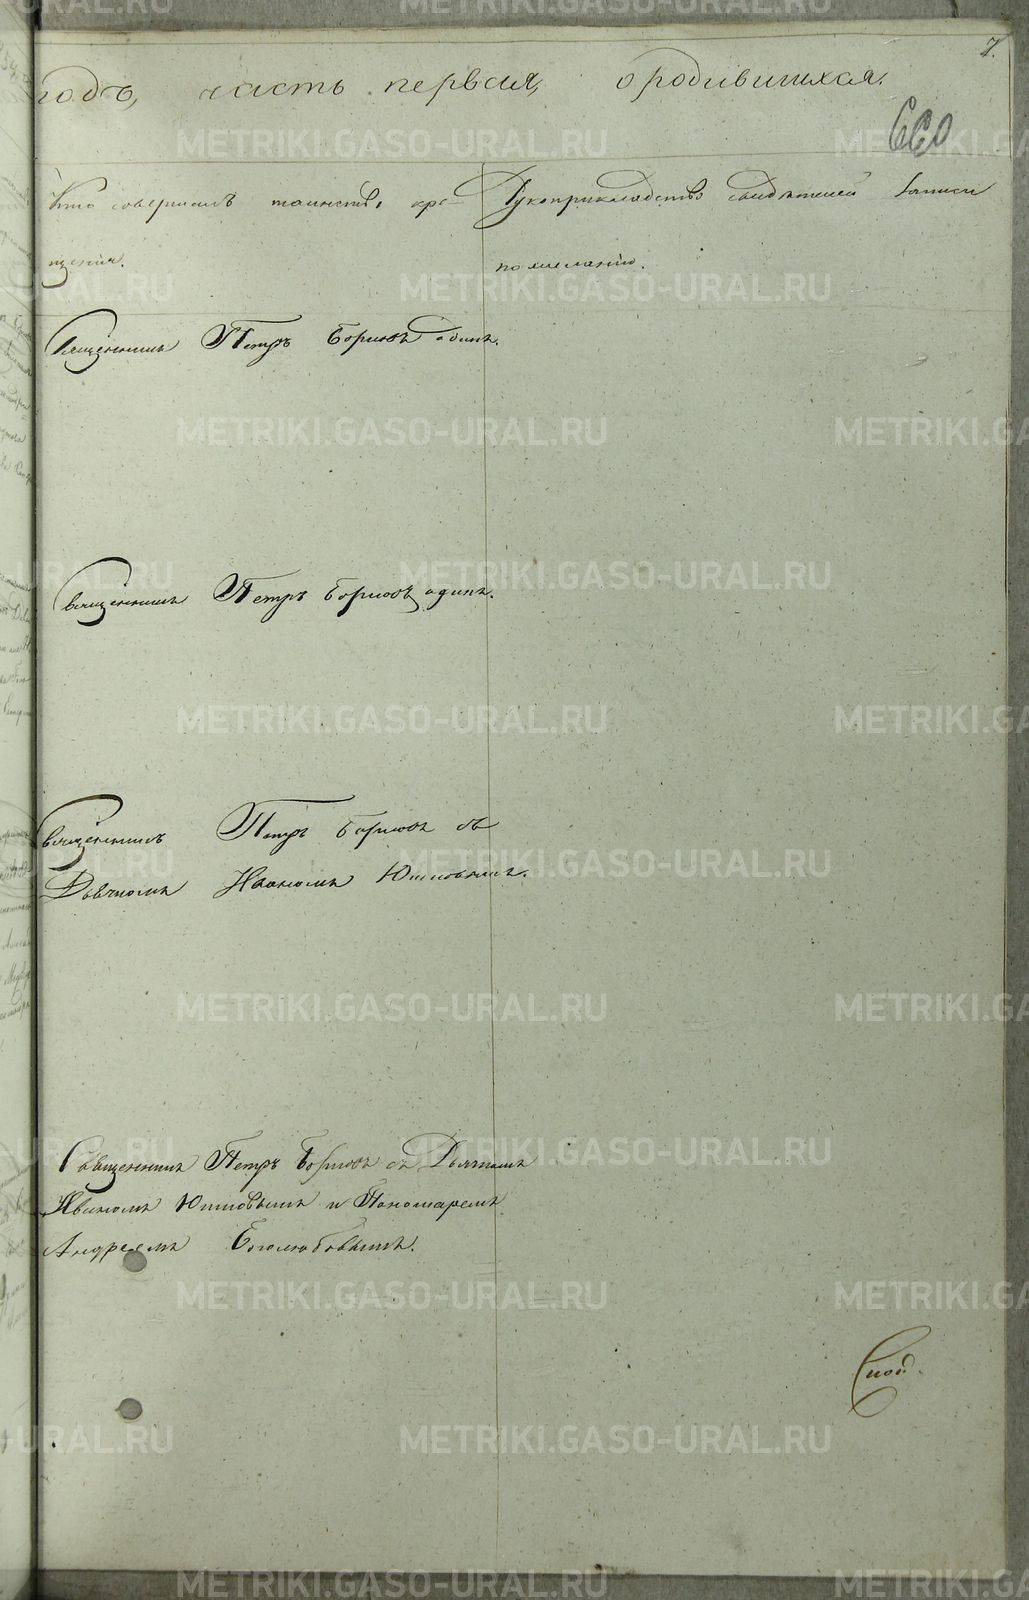 7.
годъ, часть первая, о родившихся.
660
Кто совершалъ таинство кре-
щения.
Рукоприкладство свидѣтелей записи
по желанію.
Священникъ Петръ Борисовъ одинъ.
Священникъ Петръ Борисовъ одинъ.
Священникъ Петръ Борисовъ съ
Дьячкомъ Иваномъ
Священникъ Петръ Борисовъ съ Дьячкомъ
Иваномъ и Пономаремъ
Андреемъ Боголюбовымъ.
METRIKI.GASO-URAL.RU